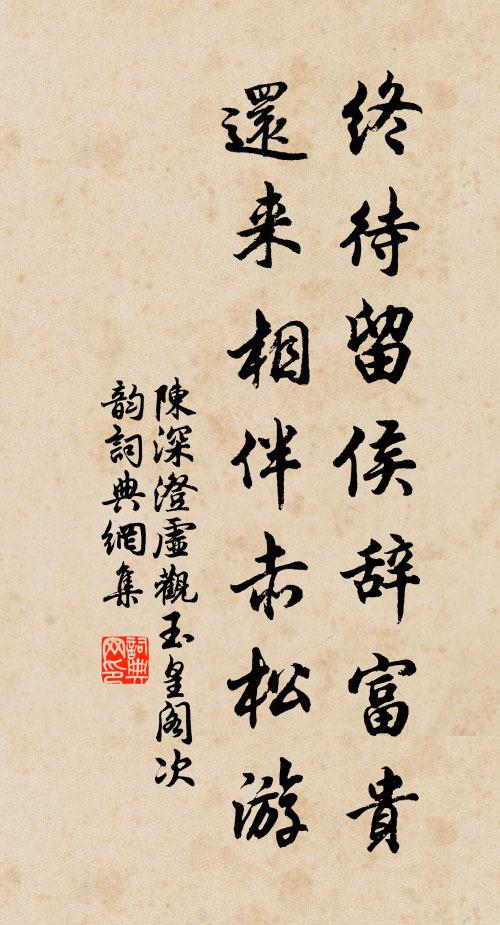 终待留侯辞富貴
還来相伴赤松游
陳深澄虛觀玉皇阁次
韵詞典網集
詞典网印